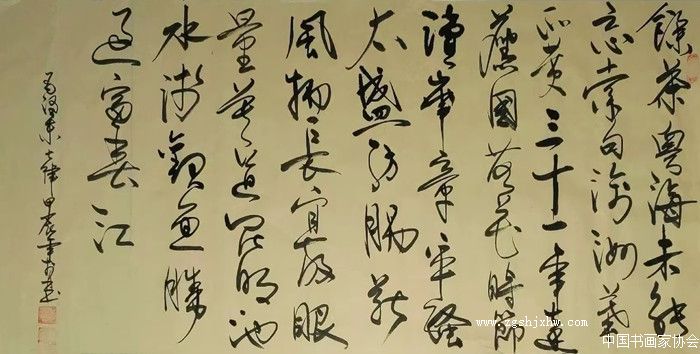 飲茶粤海未能
忘索句渝洲葉
正黄三十一年還
舊國落花時節
讀華章牢騷
太盛防腸断
風物長宜放眼
量莫道昆明池
水淺觀魚勝
過富春江
澤東七律甲辰
www.zgshjxhw.com
中国书画家协会